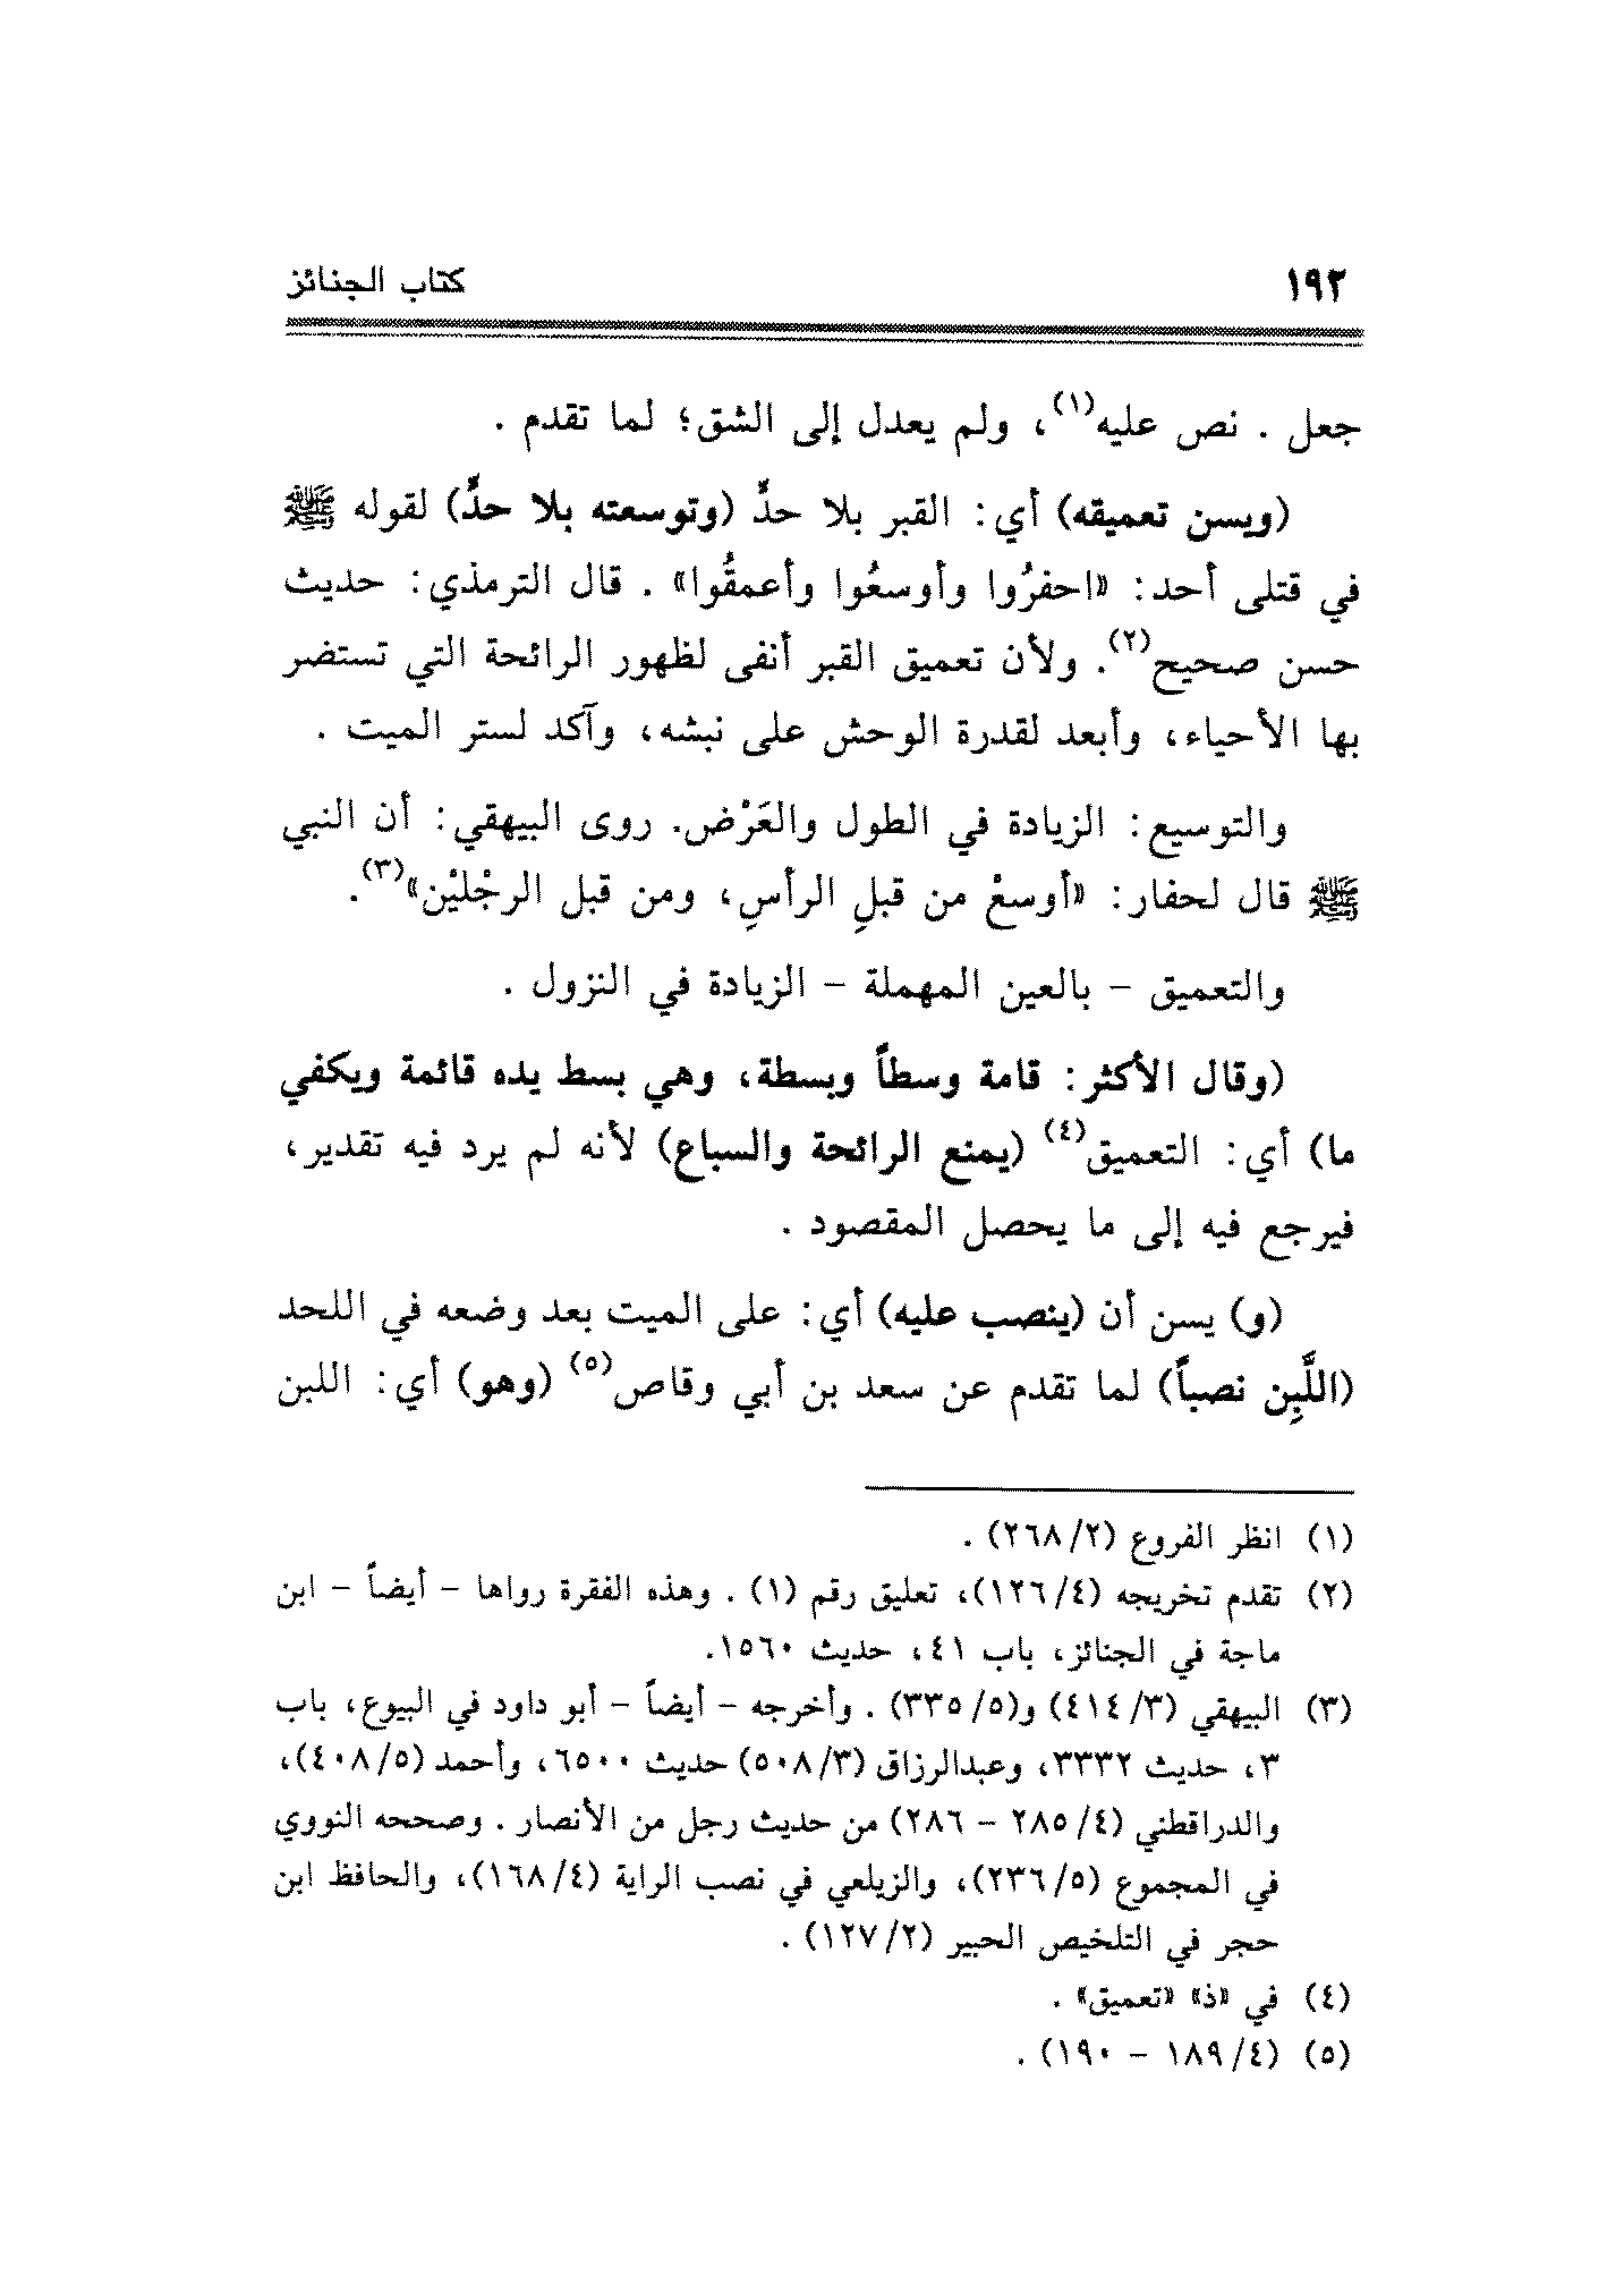 ١٩٢ كتاب الجنائز
جعل . نص عليه(١)، ولم يعدل إلى الشق؛ لما تقدم .
(ويسن تعميقه) أي: القبر بلا حدٍّ (وتوسعته بلا حدٍّ) لقوله ﷺ
في قتلى أحد: «احفرُوا وأوسعُوا وأعمقُوا» . قال الترمذي: حديث
حسن صحيح(٢). ولأن تعميق القبر أنفى لظهور الرائحة التي تستضر
بها الأحياء، وأبعد لقدرة الوحش على نبشه، وآكد لستر الميت .
والتوسيع: الزيادة في الطول والعَرْض. روى البيهقي: أن النبي
ﷺ قال لحفار: «أوسعْ من قبلِ الرأسِ، ومن قبل الرجْليْن»(٣).
والتعميق – بالعين المهملة – الزيادة في النزول .
(وقال الأكثر: قامة وسطاً وبسطة، وهي بسط يده قائمة ويكفي
ما) أي: التعميق(٤) (يمنع الرائحة والسباع) لأنه لم يرد فيه تقدير،
فيرجع فيه إلى ما يحصل المقصود .
(و) يسن أن (ينصب عليه) أي: على الميت بعد وضعه في اللحد
(اللَّبِن نصباً) لما تقدم عن سعد بن أبي وقاص(٥) (وهو) أي: اللبن
(١) انظر الفروع (٢/٢٦٨) .
(٢) تقدم تخريجه (٤/١٢٦)، تعليق رقم (١) . وهذه الفقرة رواها – أيضاً – ابن
ماجة في الجنائز، باب ٤١، حديث ١٥٦٠.
(٣) البيهقي (٣/٤١٤) و(٥/٣٣٥) . وأخرجه – أيضاً – أبو داود في البيوع، باب
٣، حديث ٣٣٣٢، وعبدالرزاق (٣/٥٠٨) حديث ٦٥٠٠، وأحمد (٥/٤٠٨)،
والدراقطني (٤/٢٨٥ – ٢٨٦) من حديث رجل من الأنصار . وصححه النووي
في المجموع (٥/٢٣٦)، والزيلعي في نصب الراية (٤/١٦٨)، والحافظ ابن
حجر في التلخيص الحبير (٢/١٢٧) .
(٤) في «ذ» «تعميق» .
(٥) (٤/١٨٩ – ١٩٠) .